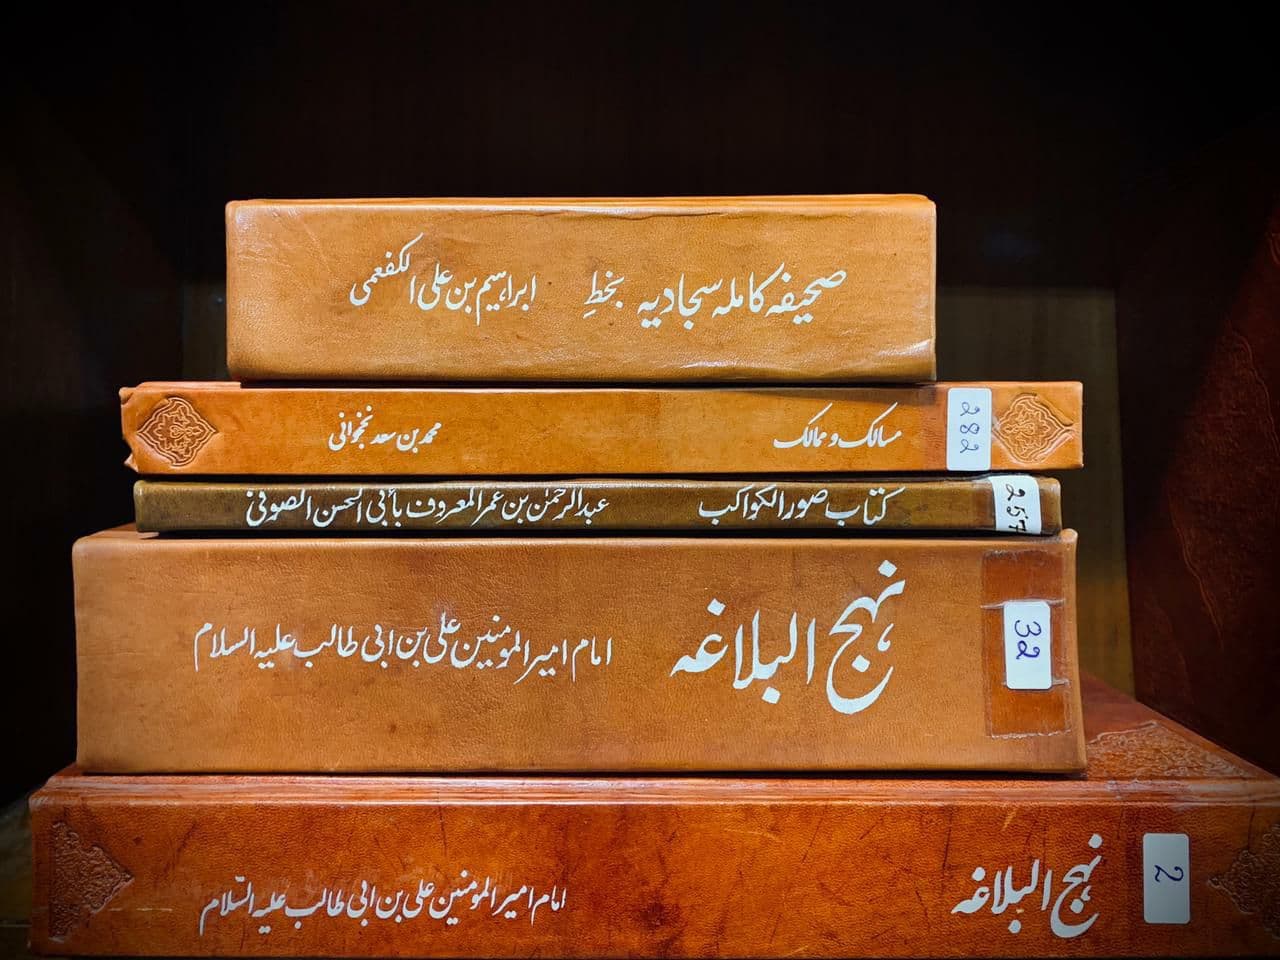 صحیفه کامله سجادیه بخطِ ابراهیم بن علی الکفعمی
282 مسالک و ممالک محمد بن سعد نخجوانی
257 کتاب صور الکواکب عبدالرحمٰن بن عمر المعروف بأبی الحسن الصوفی
32 نهج البلاغه امام امیرالمومنین علی بن ابی طالب علیه السلام
2 نهج البلاغه امام امیرالمومنین علی بن ابی طالب علیه السّلام